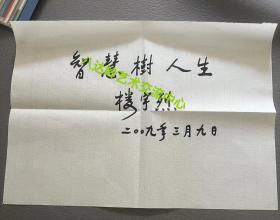 智慧樹人生
楼宇烈
二〇〇九年三月九日